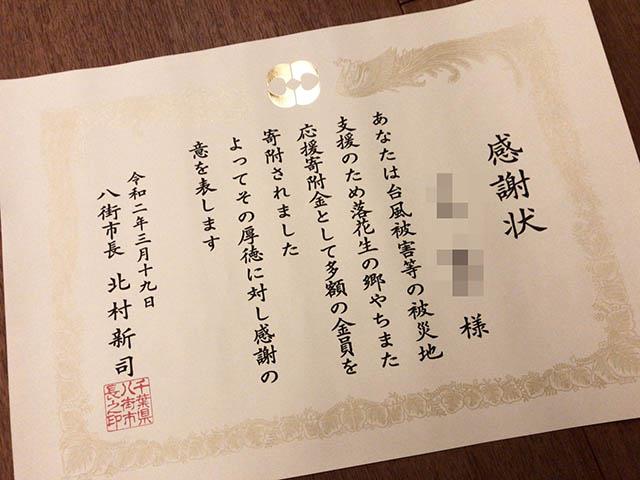 感謝状
様
あなたは台風被害等の被災地
支援のため落花生の郷やちまた
応援寄附金として多額の金員を
寄附されました
よってその厚徳に対し感謝の
意を表します
令和二年三月十九日
八街市長 北村新司
千葉県
八街市
長之印